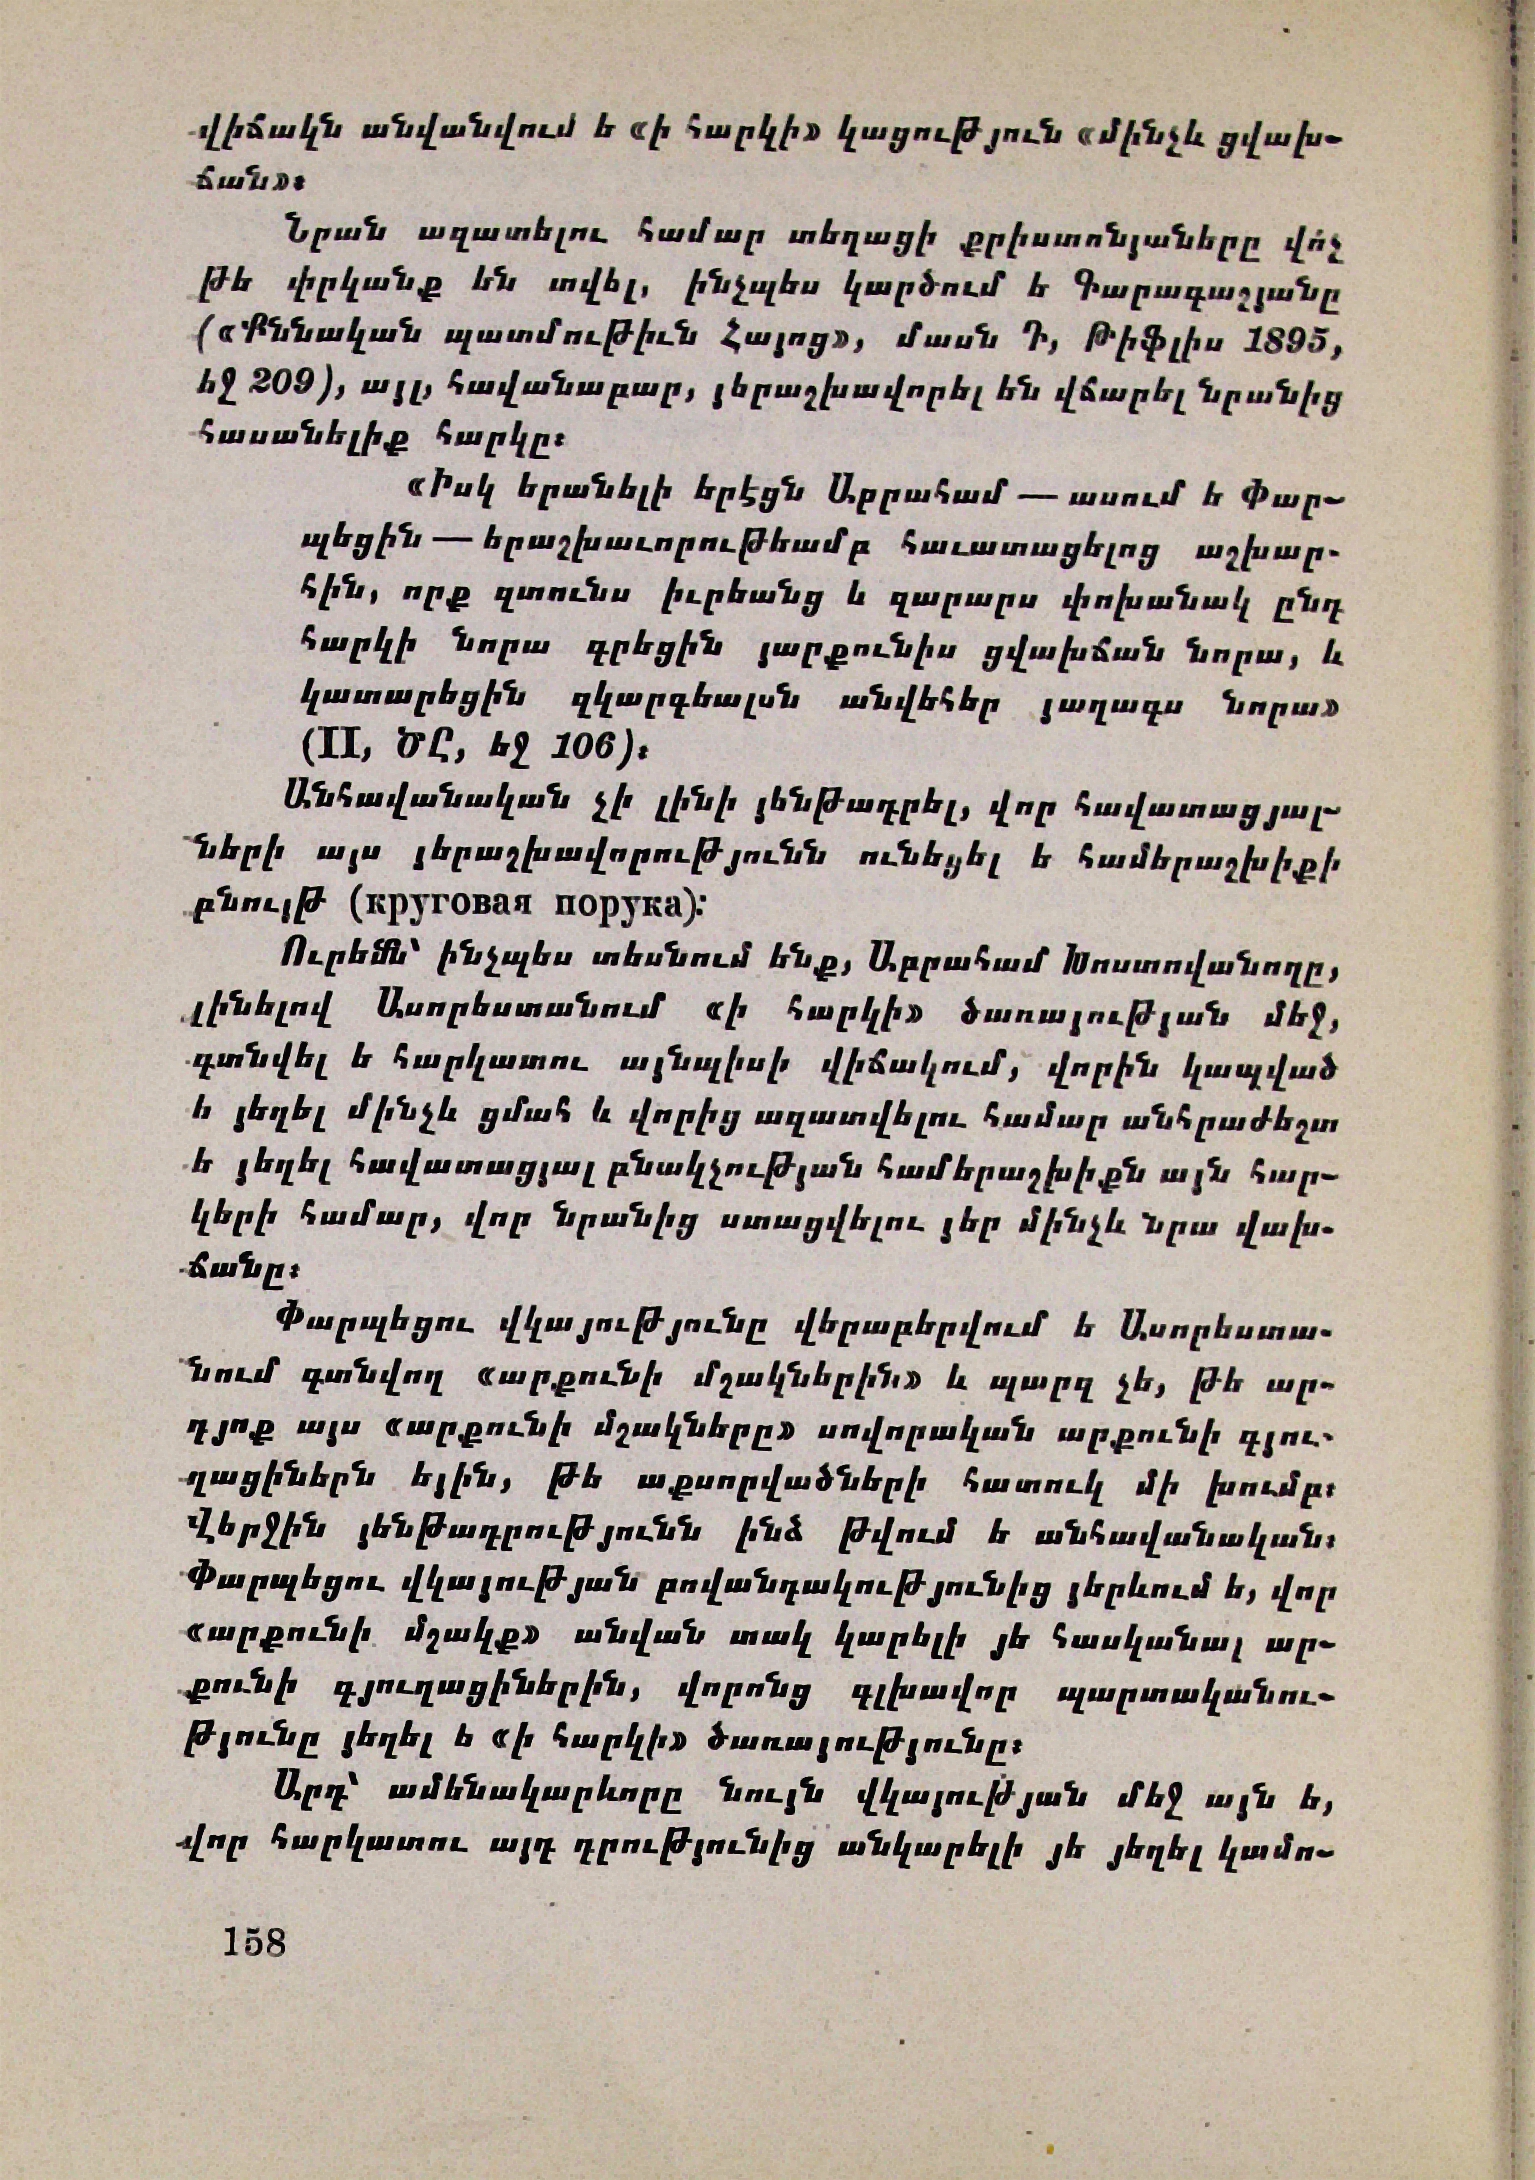 վիճակն անվանվում ե «ի հարկի» կացություն «մինչև ցվախ-
ճան»։
Նրան ազատելու համար տեղացի քրիստոնյաները վո՛չ
թե փրկանք են տվել, ինչպես կարծում ե Գարագաշյանը
(«Քննական պատմութիւն Հայոց», մասն Դ, Թիֆլիս 1895,
եջ 209), այլ, հավանաբար, յերաշխավորել են վճարել նրանից
հասանելիք հարկը։
«Իսկ երանելի երէցն Աբրահամ — ասում ե Փար-
պեցին — երաշխաւորութեամբ հաւատացելոց աշխար-
հին, որք զտունս իւրեանց և զարարս փոխանակ ընդ
հարկի նորա գրեցին յարքունիս ցվախճան նորա, և
կատարեցին զկարգեալսն անվեհեր յաղագս նորա»
(II, ԾԸ, եջ 106)։
Անհավանական չի լինի յենթադրել, վոր հավատացյալ-
ների այս յերաշխավորությունն ունեցել ե համերաշխիքի
բնույթ (круговая порука)։
Ուրեմն՝ ինչպես տեսնում ենք, Աբրահամ Խոստովանողը,
լինելով Ասորեստանում «ի հարկի» ծառայության մեջ,
գտնվել ե հարկատու այնպիսի վիճակում, վորին կապված
ե յեղել մինչև ցմահ և վորից ազատվելու համար անհրաժեշտ
ե յեղել հավատացյալ բնակչության համերաշխիքն այն հար-
կերի համար, վոր նրանից ստացվելու յեր մինչև նրա վախ-
ճանը։
Փարպեցու վկայությունը վերաբերվում ե Ասորեստա-
նում գտնվող «արքունի մշակներին» և պարզ չե, թե ար-
դյոք այս «արքունի մշակները» սովորական արքունի գյու-
ղացիներն եյին, թե աքսորվածների հատուկ մի խումբ։
Վերջին յենթադրությունն ինձ թվում ե անհավանական։
Փարպեցու վկայության բովանդակությունից յերևում ե, վոր
«արքունի մշակք» անվան տակ կարելի յե հասկանալ ար-
քունի գյուղացիներին, վորոնց գլխավոր պարտականու-
թյունը յեղել ե «ի հարկի» ծառայությունը։
Արդ՝ ամենակարևորը նույն վկայության մեջ այն ե,
վոր հարկատու այդ դրությունից անկարելի յե յեղել կամո-
158